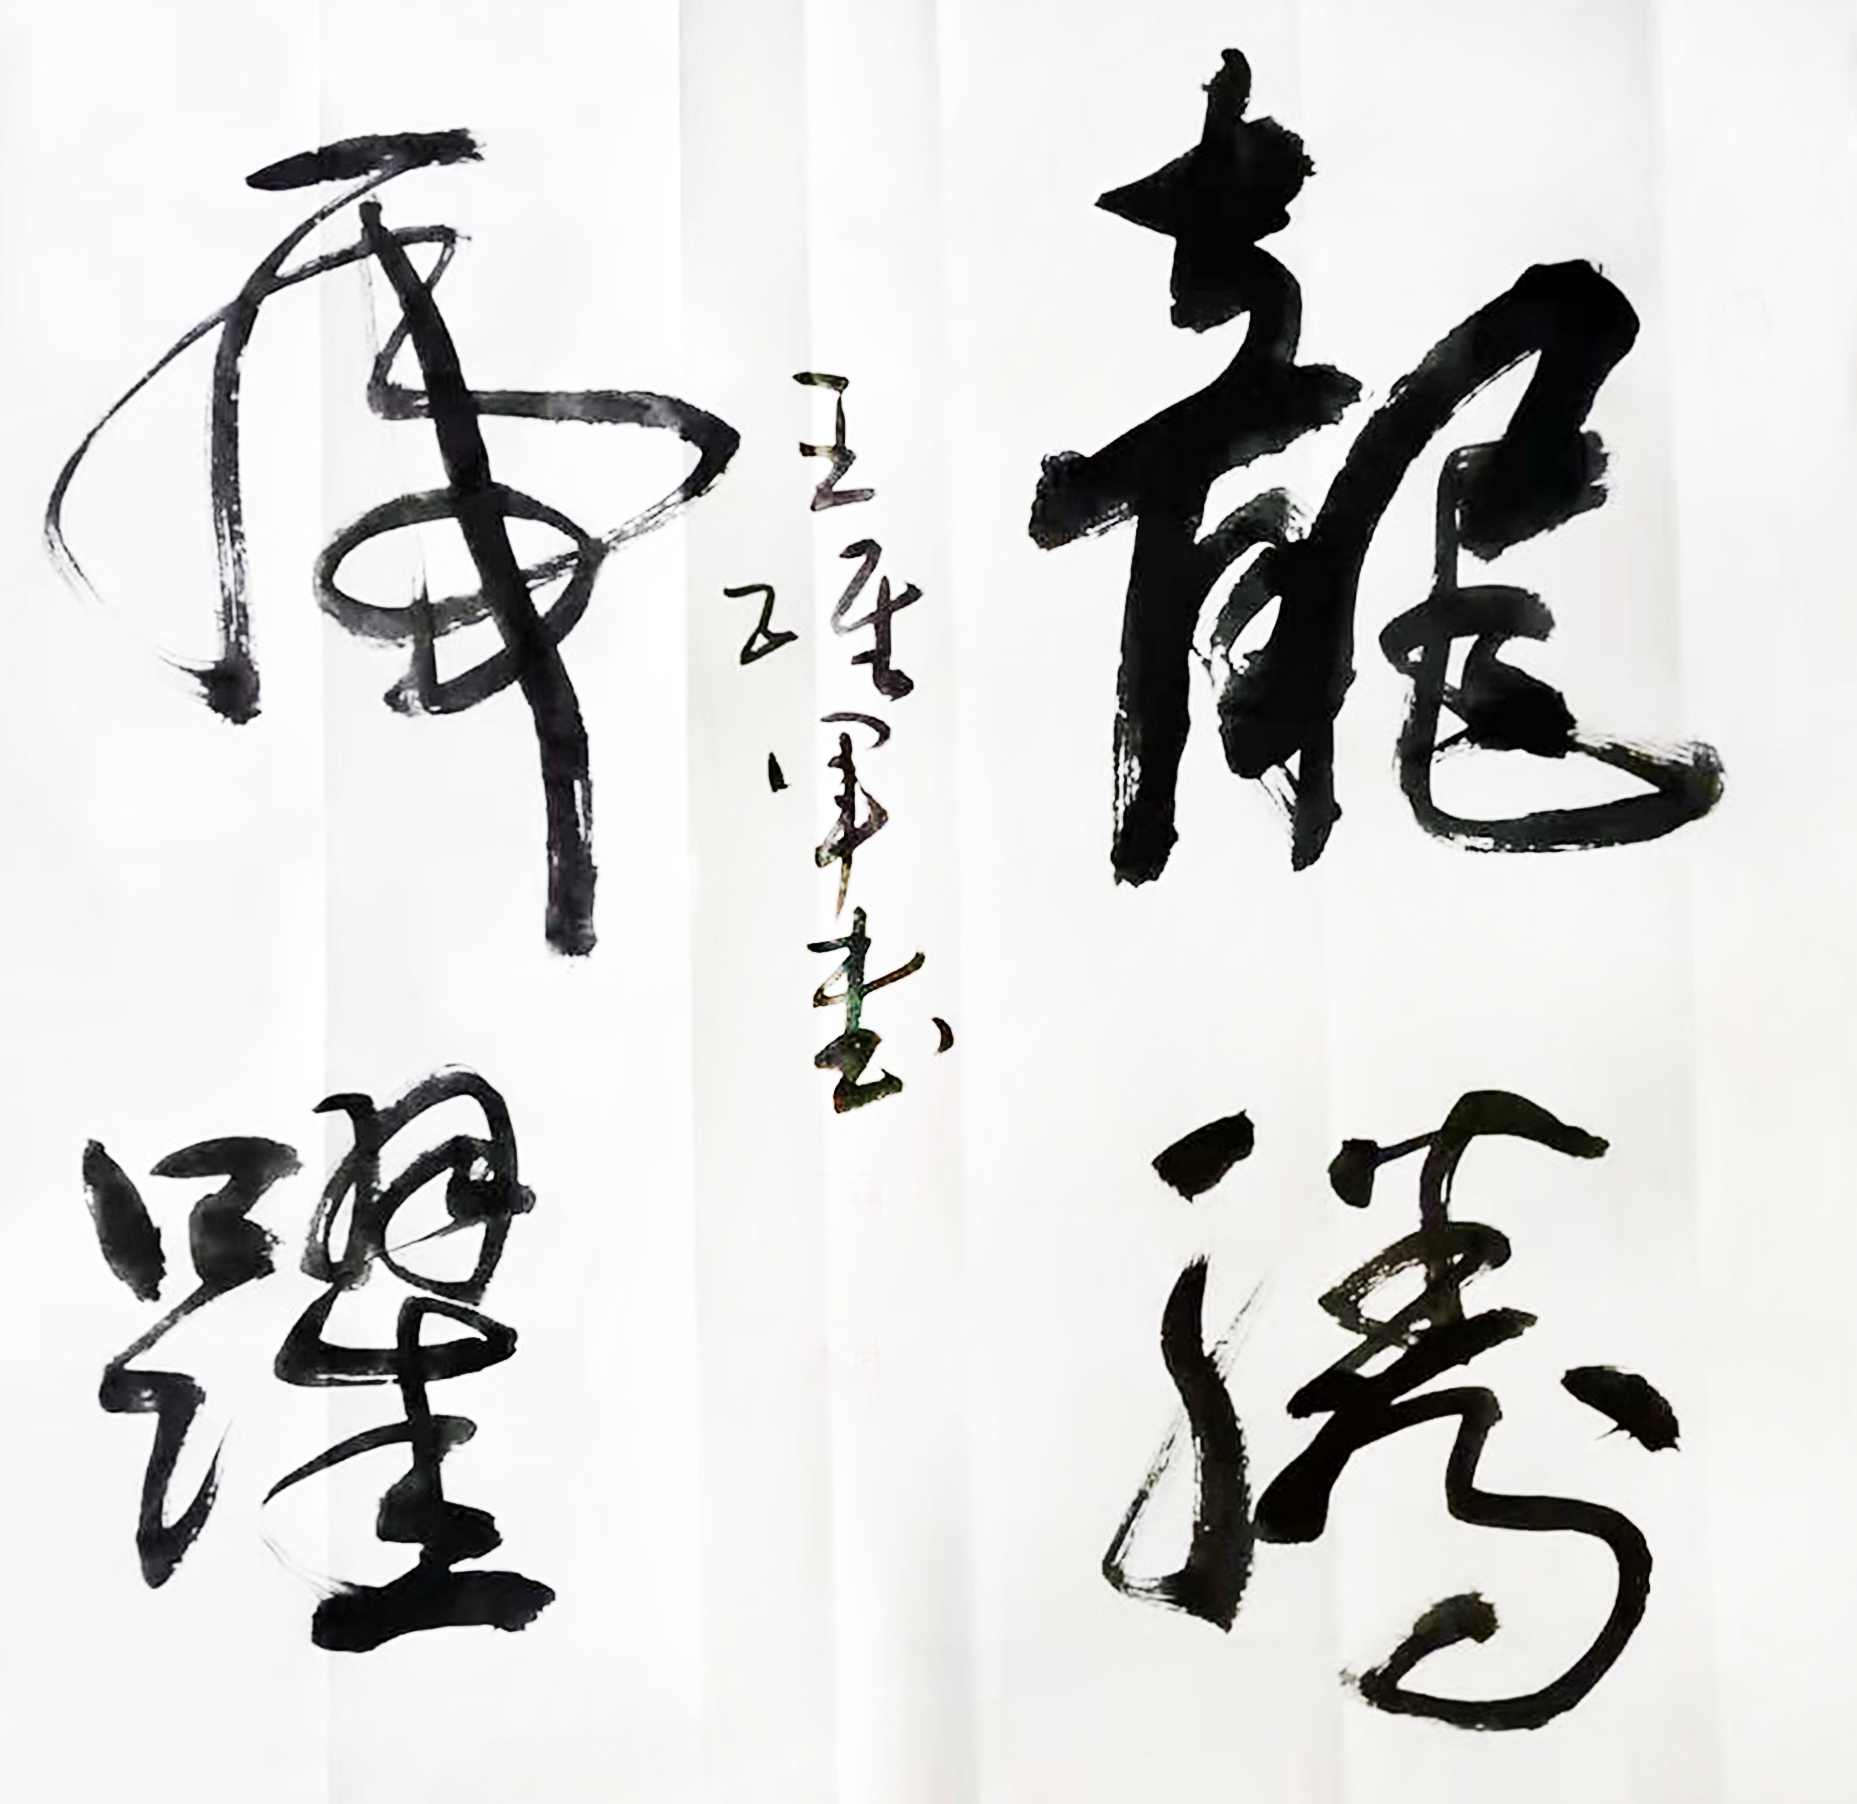 龍騰
虎躍
王躍軍書